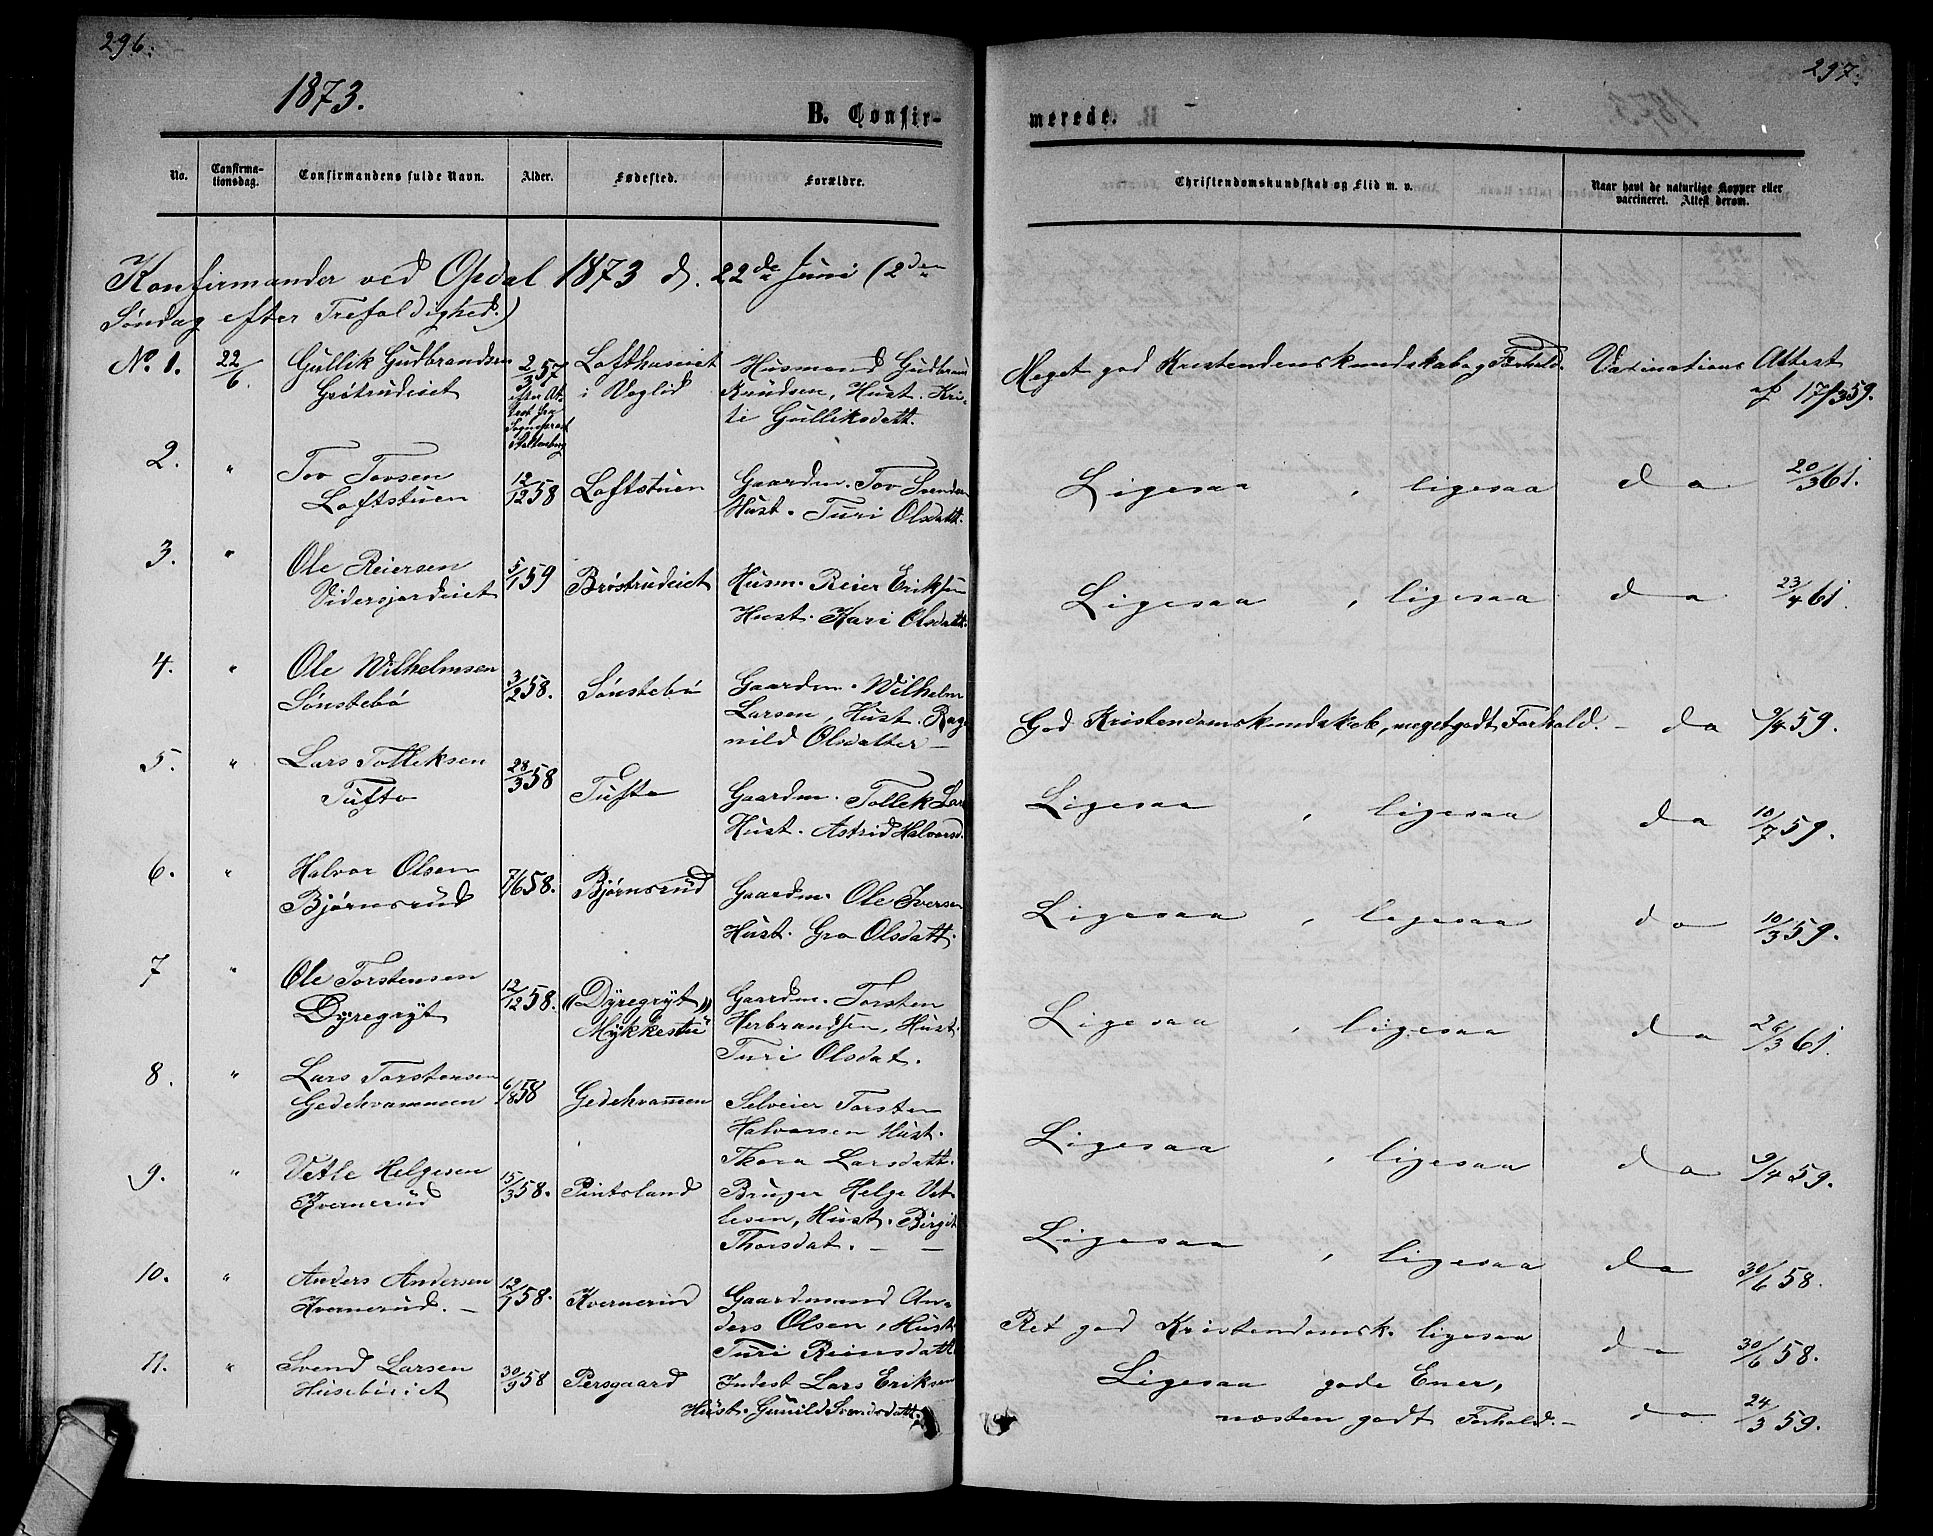 296.
1873.
B. Confir-
No.
Confirma-
tionsdag.
Confirmandens fulde Navn.
Alder.
Fødested.
Forældre.
Konfirmander ved Opdal 1873 d. 22de Juni (2den
Søndag efter Trefoldighed.)
No. 1. 22/6 Gullik Gudbrandsen 2/3 57 Lofthuseiet Husmand Gudbrand
Grøtrudeiet efter At- i Veglid Knudsen, Hust. Kri-
test fra tie Gulliksdatt.
Sognepræst
Stoltenberg
2. " Tov Tovsen 12/12 58 Loftstuen Gaardm. Tov Svendsen
Loftstuen Hust. Turi Olsdatt.
3. " Ole Reiersen 5/1 59 Brøstrudeiet Husm. Reier Eriksen
Vidersjordeiet Hust. Kari Olsdatt.
4. " Ole Wilhelmsen 3/2 58. Sønstebø Gaardm. Wilhelm
Sønstebø Larsen, Hust. Rag-
nild Olsdatter —
5. " Lars Tolleksen 28/3 58 Tufte Gaardm. Tollek Lars
Tufto Hust. Astrid Halvorsd.
6. " Halvor Olsen 7/6 58. Bjørnsrud Gaardm. Ole Iversen
Bjørnsrud Hust. Gro Olsdatt.
7 " Ole Torstensen 12/12 58. (Dyregryt) Gaardm. Torsten
Dyregryt Mykkestu Herbrandsen, Hust.
Turi Olsdat.
8. " Lars Torstensen 58 Gedekvammen Selveier Torsten
Gedekvammen Halvorsen Hust.
Thora Larsdatt.
9. " Vetle Helgesen 15/3 58. Pintsland Bruger Helge Vet-
Kvernerud lesen, Hust. Birgit
Thorsdat. — —
10. " Anders Andersen 12/1 58. Kvernerud Gaardmand An-
Kvernerud. — ders Olsen, Hust.
Turi Reinsdatt.
11. " Svend Larsen 30/9 58 Persgaard Inderst Lars Eriksen
Husebøeiet Hust. Gunild Svendsdatt.
297.
merede.
Christendomskundskab og Flid m. v.
Naar havt de naturlige Kopper eller
vaccineret. Attest derom.
Meget god Kristendomskundskab og Forhold. Vacinations Attest
af 17/3 59.
Ligesaa, ligesaa do 20/3 61.
Ligesaa, ligesaa do 23/4 61.
God Kristendomskundskab, meget godt Forhold. — do 9/4 59.
Ligesaa, ligesaa do 10/7 59.
Ligesaa, ligesaa do 10/3 59.
Ligesaa, ligesaa do 26/3 61.
Ligesaa, ligesaa do 9/4 59.
Ligesaa, ligesaa do 30/6 58.
Ret god Kristendomsk. ligesaa do 30/6 58.
Ligesaa gode Evner,
næsten godt Forhold. — do 24/3 59.